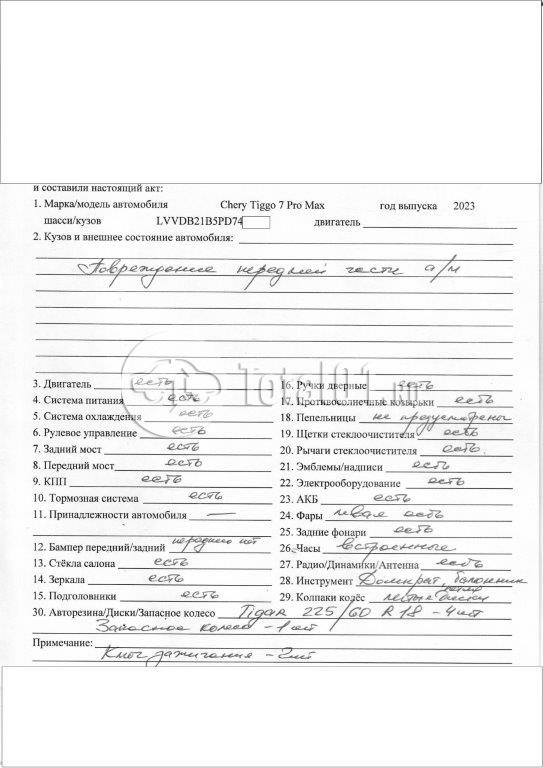 и составили настоящий акт:
1. Марка/модель автомобиля Chery Tiggo 7 Pro Max год выпуска 2023
шасси/кузов LVVDB21B5PD74 двигатель
2. Кузов и внешнее состояние автомобиля:
Повреждение передней части а/м
3. Двигатель есть
4. Система питания есть
5. Система охлаждения есть
6. Рулевое управление есть
7. Задний мост есть
8. Передний мост есть
9. КПП есть
10. Тормозная система есть
11. Принадлежности автомобиля —
12. Бампер передний/задний переднего нет
13. Стёкла салона есть
14. Зеркала есть
15. Подголовники есть
16. Ручки дверные есть
17. Противосолнечные козырьки есть
18. Пепельницы не предусмотрены
19. Щетки стеклоочистителя есть
20. Рычаги стеклоочистителя есть.
21. Эмблемы/надписи есть
22. Электрооборудование есть
23. АКБ есть
24. Фары левая есть
25. Задние фонари есть
26. Часы встроенные
27. Радио/Динамики/Антенна есть
28. Инструмент Домкрат, балонник
29. Колпаки колёс литые диски
30. Авторезина/Диски/Запасное колесо Tigar 225/60 R 18 - 4 шт
Запасное колесо - 1 шт
Примечание:
Ключ зажигания - 2 шт
Total01.ru